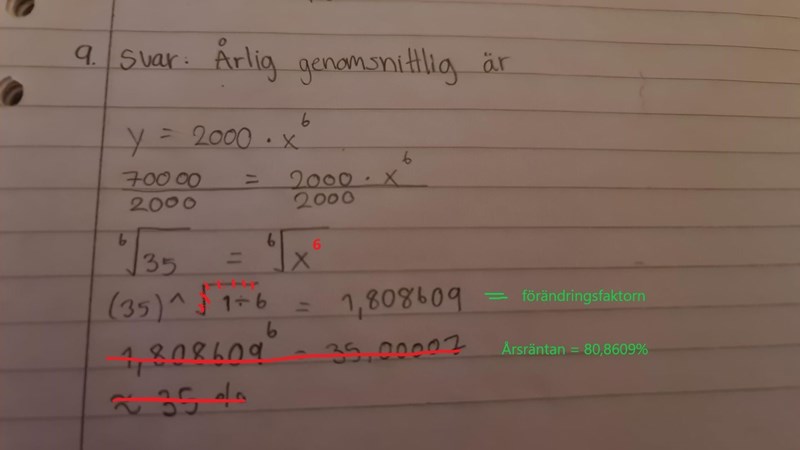 9. Svar: Årlig genomsnittlig är
y = 2000 · x^6
70000/2000 = 2000 · x^6/2000
⁶√35 = ⁶√x^6
(35)^ √1÷6 = 1,808609 = förändringsfaktorn
1,808609^6 = 35,00007 Årsräntan = 80,8609%
≈ 35 %